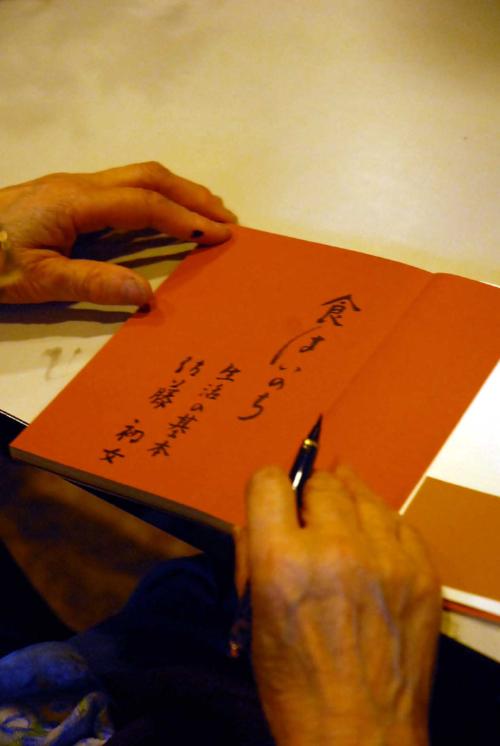 食はいのち
生活の基本
佐藤初女